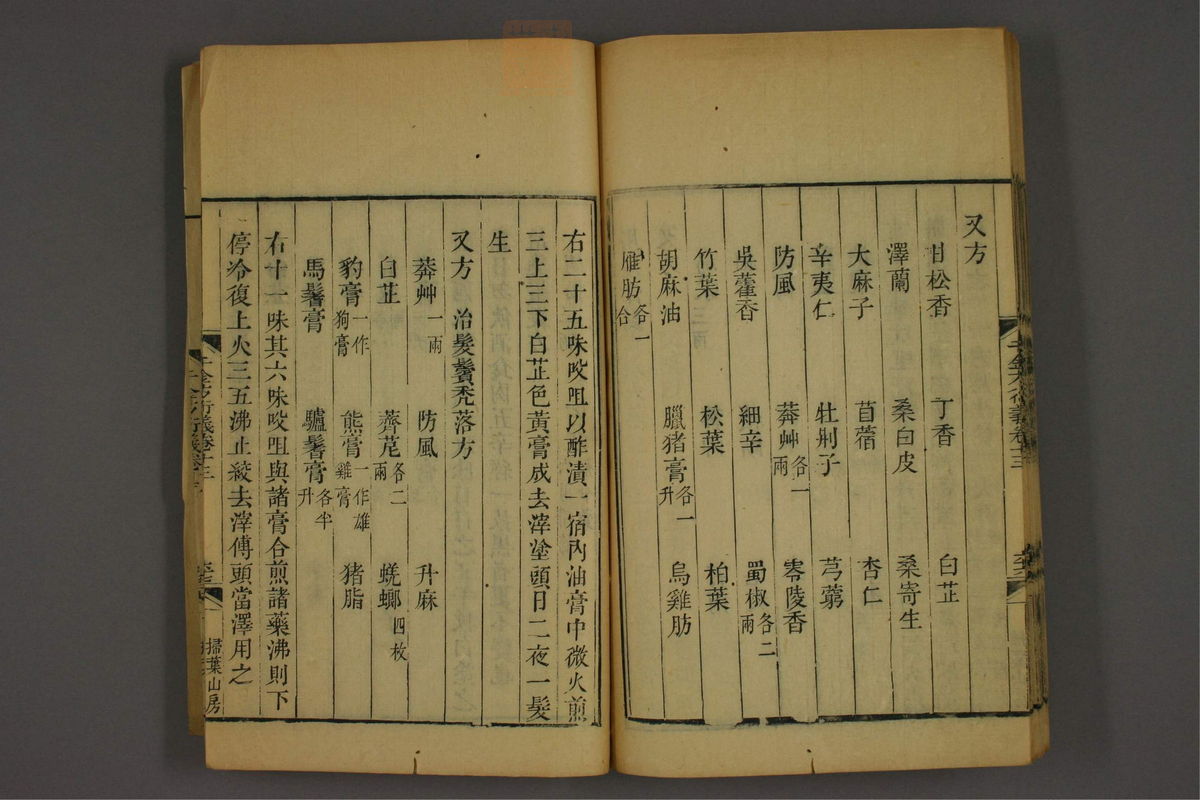 又方
甘松香 丁香 白芷
澤蘭 桑白皮 桑寄生
大麻子 苜蓿 杏仁
辛夷仁 牡荆子 芎藭
防風 莽艸各一兩 零陵香
吳藿香 細辛 蜀椒各二兩
竹葉 松葉 柏葉
胡麻油 臘猪膏各一升 烏雞肪
雁肪各一合
右二十五味㕮咀以酢漬一宿內油膏中微火煎
三上三下白芷色黃膏成去滓塗頭日二夜一髮
生
又方 治髮鬢禿落方
莽艸一兩 防風 升麻
白芷 薺苨各二兩 蜣螂四枚
豹膏一作狗膏 熊膏一作雄雞膏 猪脂
馬鬐膏 驢鬐膏各半升
右十一味其六味㕮咀與諸膏合煎諸藥沸則下
停冷復上火三五沸止絞去滓傅頭當澤用之
千金方衍義卷十三
掃葉山房